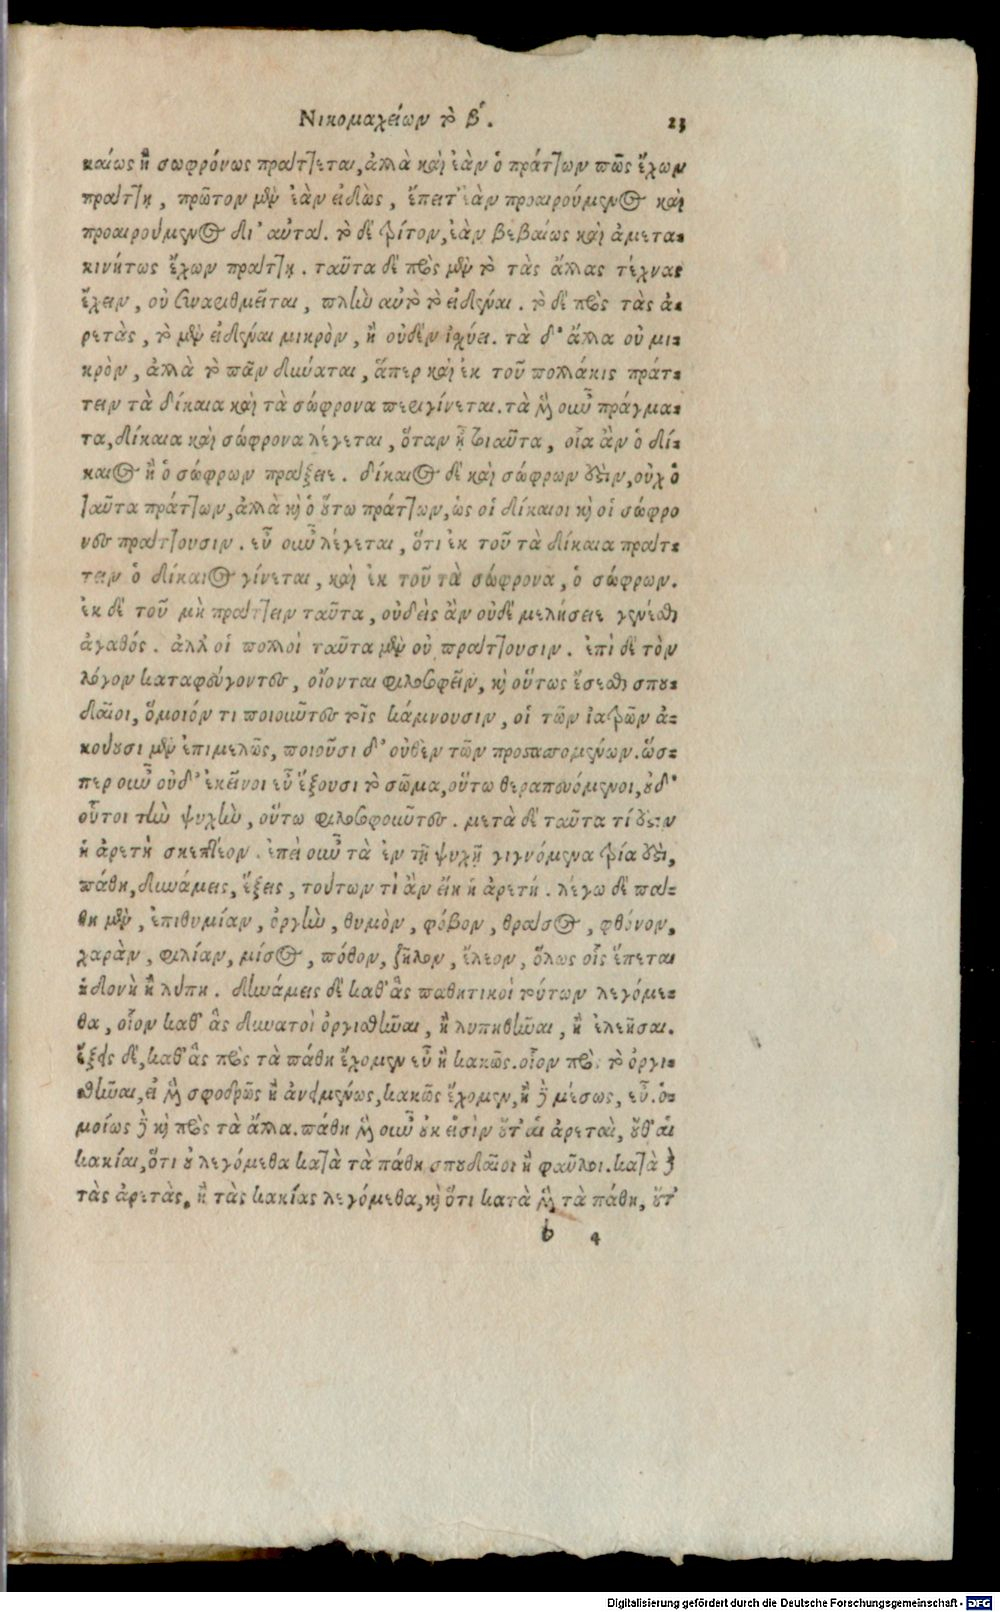 Νικομαχείων τὸ β΄. 23
καίως ἢ σωφρόνως πράττεται, ἀλλὰ καὶ ἐὰν ὁ πράττων πῶς ἔχων
πράττῃ, πρῶτον μὲν ἐὰν εἰδὼς, ἔπειτ' ἐὰν προαιρούμενος καὶ
προαιρούμενος δι' αὐτά. τὸ δὲ τρίτον, ἐὰν βεβαίως καὶ ἀμετα-
κινήτως ἔχων πράττῃ. ταῦτα δὲ πρὸς μὲν τὸ τὰς ἄλλας τέχνας
ἔχειν, οὐ συναριθμεῖται, πλὴν αὐτὸ τὸ εἰδέναι. τὸ δὲ πρὸς τὰς ἀ-
ρετὰς, τὸ μὲν εἰδέναι μικρὸν, ἢ οὐδὲν ἰσχύει. τὰ δ' ἄλλα οὐ μι-
κρὸν, ἀλλὰ τὸ πᾶν δύναται, ἅπερ καὶ ἐκ τοῦ πολλάκις πράτ-
τειν τὰ δίκαια καὶ τὰ σώφρονα περιγίνεται. τὰ μὲν οὖν πράγμα-
τα, δίκαια καὶ σώφρονα λέγεται, ὅταν ᾖ τοιαῦτα, οἷα ἂν ὁ δί-
καιος ἢ ὁ σώφρων πράξειε. δίκαιος δὲ καὶ σώφρων ἐστὶν, οὐχ ὁ
ταῦτα πράττων, ἀλλὰ καὶ ὁ οὕτω πράττων, ὡς οἱ δίκαιοι καὶ οἱ σώφρο
νες πράττουσιν. εὖ οὖν λέγεται, ὅτι ἐκ τοῦ τὰ δίκαια πράτ-
τειν ὁ δίκαιος γίνεται, καὶ ἐκ τοῦ τὰ σώφρονα, ὁ σώφρων.
ἐκ δὲ τοῦ μὴ πράττειν ταῦτα, οὐδεὶς ἂν οὐδὲ μελήσειε γενέσθαι
ἀγαθός. ἀλλ' οἱ πολλοὶ ταῦτα μὲν οὐ πράττουσιν. ἐπὶ δὲ τὸν
λόγον καταφεύγοντες, οἴονται φιλοσοφεῖν, καὶ οὕτως ἔσεσθαι σπου-
δαῖοι, ὅμοιόν τι ποιοῦντες τοῖς κάμνουσιν, οἳ τῶν ἰατρῶν ἀ-
κούουσι μὲν ἐπιμελῶς, ποιοῦσι δ' οὐθὲν τῶν προσταττομένων. ὥσ-
περ οὖν οὐδ' ἐκεῖνοι εὖ ἕξουσι τὸ σῶμα, οὕτω θεραπευόμενοι, οὐδ'
οὗτοι τὴν ψυχὴν, οὕτω φιλοσοφοῦντες. μετὰ δὲ ταῦτα τί ἐστιν
ἡ ἀρετὴ σκεπτέον. ἐπεὶ οὖν τὰ ἐν τῇ ψυχῇ γιγνόμενα τρία ἐστὶ,
πάθη, δυνάμεις, ἕξεις, τούτων τὶ ἂν εἴη ἡ ἀρετή. λέγω δὲ πά-
θη μὲν, ἐπιθυμίαν, ὀργὴν, θυμὸν, φόβον, θράσος, φθόνον,
χαρὰν, φιλίαν, μίσος, πόθον, ζῆλον, ἔλεον, ὅλως οἷς ἕπεται
ἡδονὴ ἢ λύπη. δυνάμεις δὲ καθ' ἃς παθητικοὶ τούτων λεγόμε-
θα, οἷον καθ' ἃς δυνατοὶ ὀργισθῆναι, ἢ λυπηθῆναι, ἢ ἐλεῆσαι.
ἕξεις δὲ, καθ' ἃς πρὸς τὰ πάθη ἔχομεν εὖ ἢ κακῶς. οἷον πρὸς τὸ ὀργι-
σθῆναι, εἰ μὲν σφοδρῶς ἢ ἀνειμένως, κακῶς ἔχομεν, ἢ δὲ μέσως, εὖ. ὁ-
μοίως δὲ καὶ πρὸς τὰ ἄλλα. πάθη μὲν οὖν οὐκ εἰσὶν οὔτ' αἱ ἀρεταὶ, οὔθ' αἱ
κακίαι, ὅτι οὐ λεγόμεθα κατὰ τὰ πάθη σπουδαῖοι ἢ φαῦλοι. κατὰ δὲ
τὰς ἀρετὰς, ἢ τὰς κακίας λεγόμεθα, καὶ ὅτι κατὰ μὲν τὰ πάθη, οὔτ'
b 4
Digitalisierung gefördert durch die Deutsche Forschungsgemeinschaft - DFG